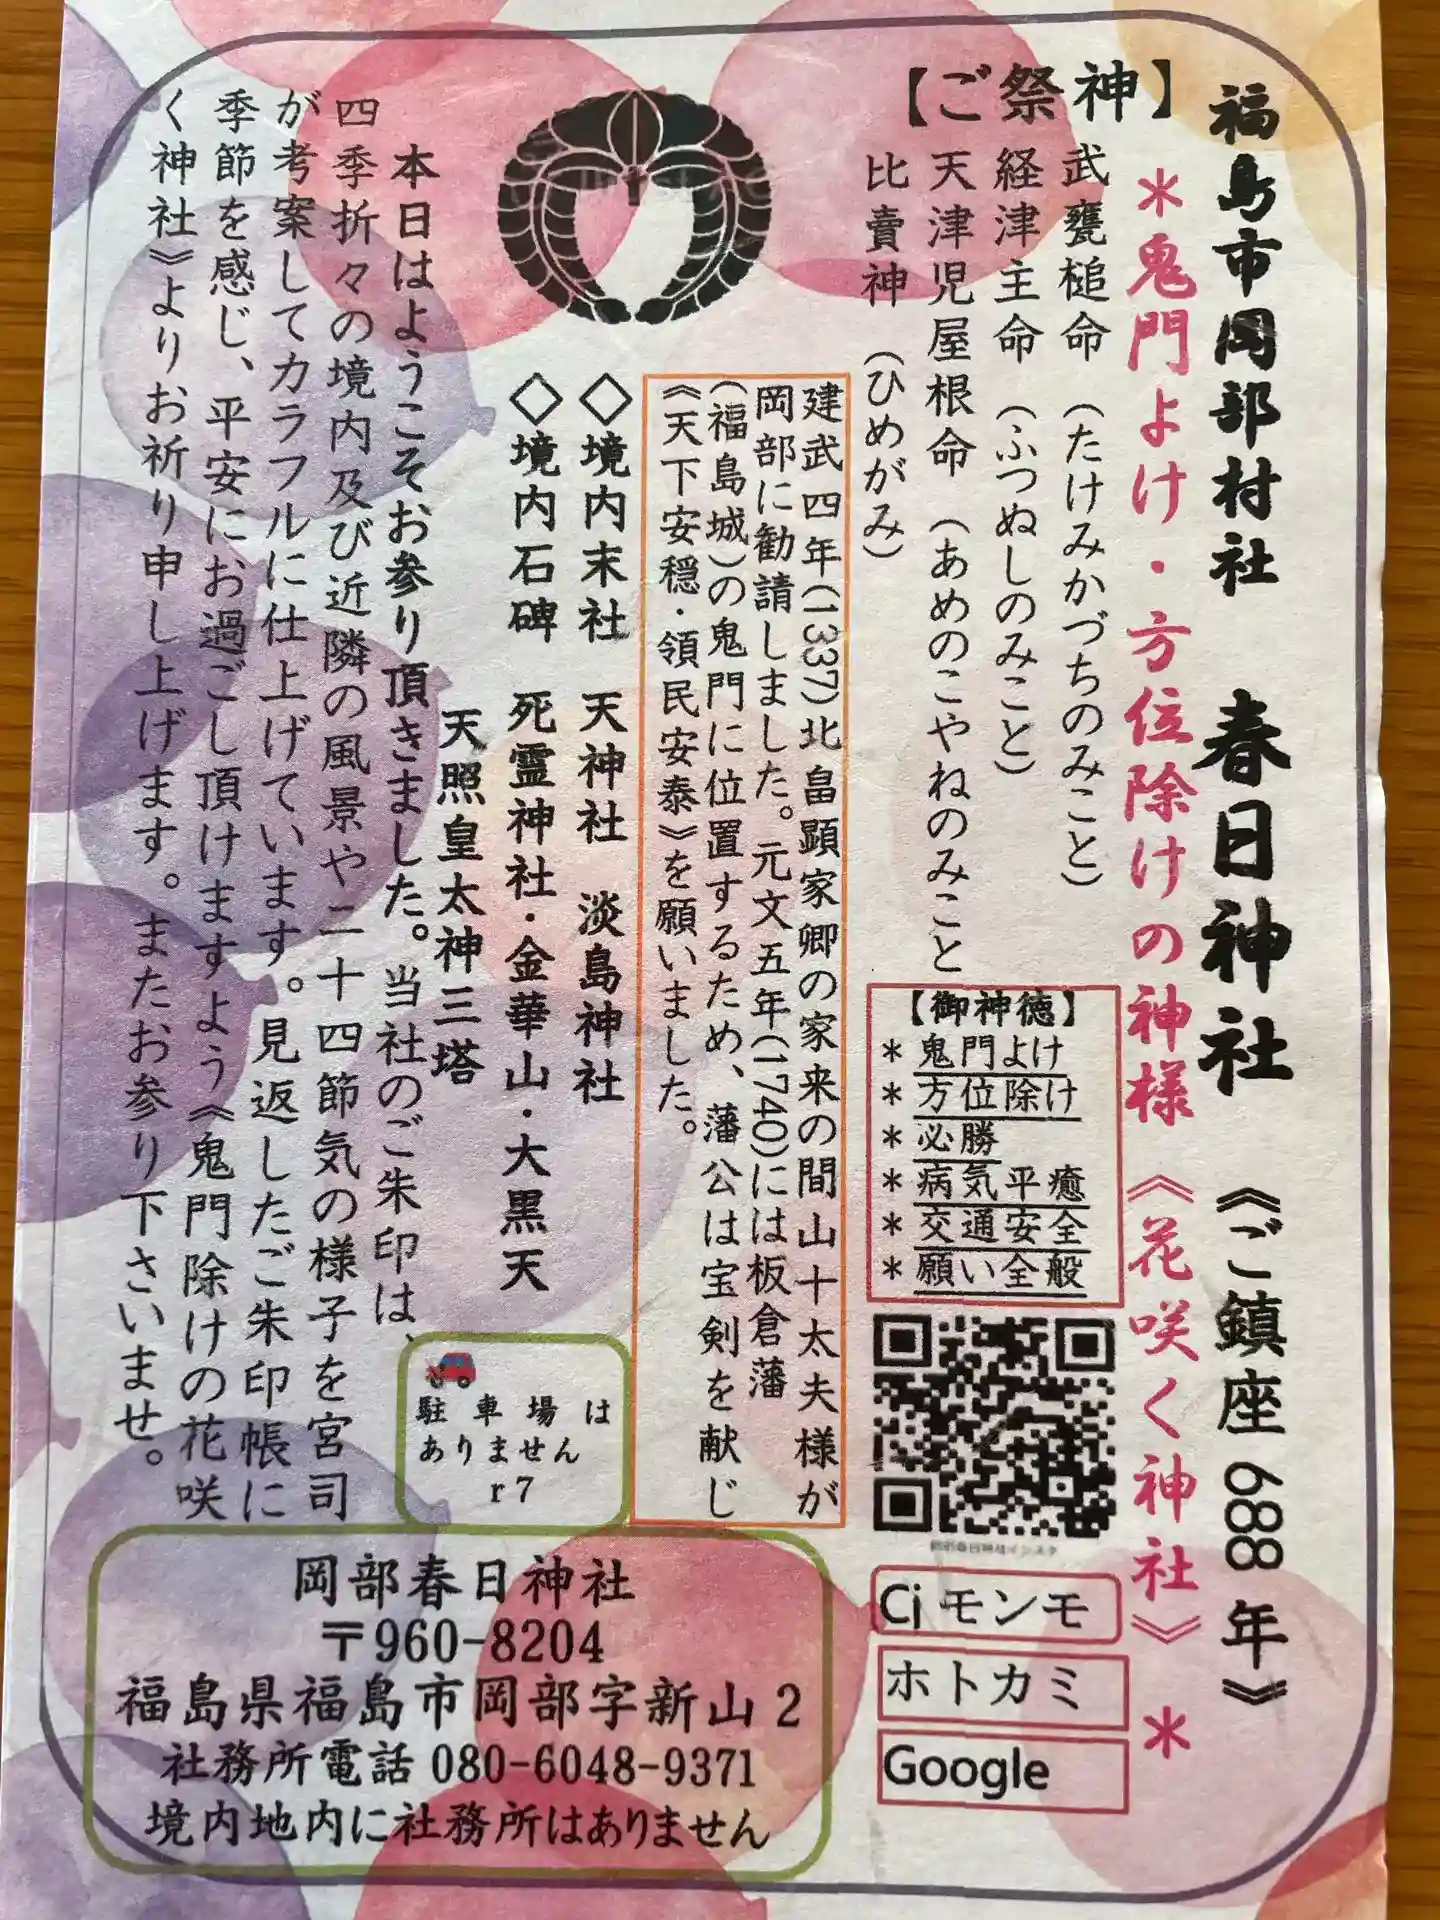 福島市岡部村社　春日神社　《ご鎮座 688 年》
＊鬼門よけ・方位除けの神様《花咲く神社》＊
【ご祭神】
武甕槌命　(たけみかづちのみこと)
経津主命　(ふつぬしのみこと)
天津児屋根命　(あめのこやねのみこと
比賣神　(ひめがみ)
【御神徳】
＊鬼門よけ
＊方位除け
＊必勝
＊病気平癒
＊交通安全
＊願い全般
Ci モンモ
ホトカミ
Google
建武四年(1337)北畠顕家卿の家来の間山十太夫様が
岡部に勧請しました。元文五年(1740)には板倉藩
(福島城)の鬼門に位置するため、藩公は宝剣を献じ
《天下安穏・領民安泰》を願いました。
◇境内末社　天神社　淡島神社
◇境内石碑　死霊神社・金華山・大黒天
天照皇太神三塔
本日はようこそお参り頂きました。当社のご朱印は、
四季折々の境内及び近隣の風景や二十四節気の様子を宮司
が考案してカラフルに仕上げています。見返したご朱印帳に
季節を感じ、平安にお過ごし頂けますよう《鬼門除けの花咲
く神社》よりお祈り申し上げます。またお参り下さいませ。
駐車場は
ありません
r7
岡部春日神社
〒960-8204
福島県福島市岡部字新山 2
社務所電話 080-6048-9371
境内地内に社務所はありません